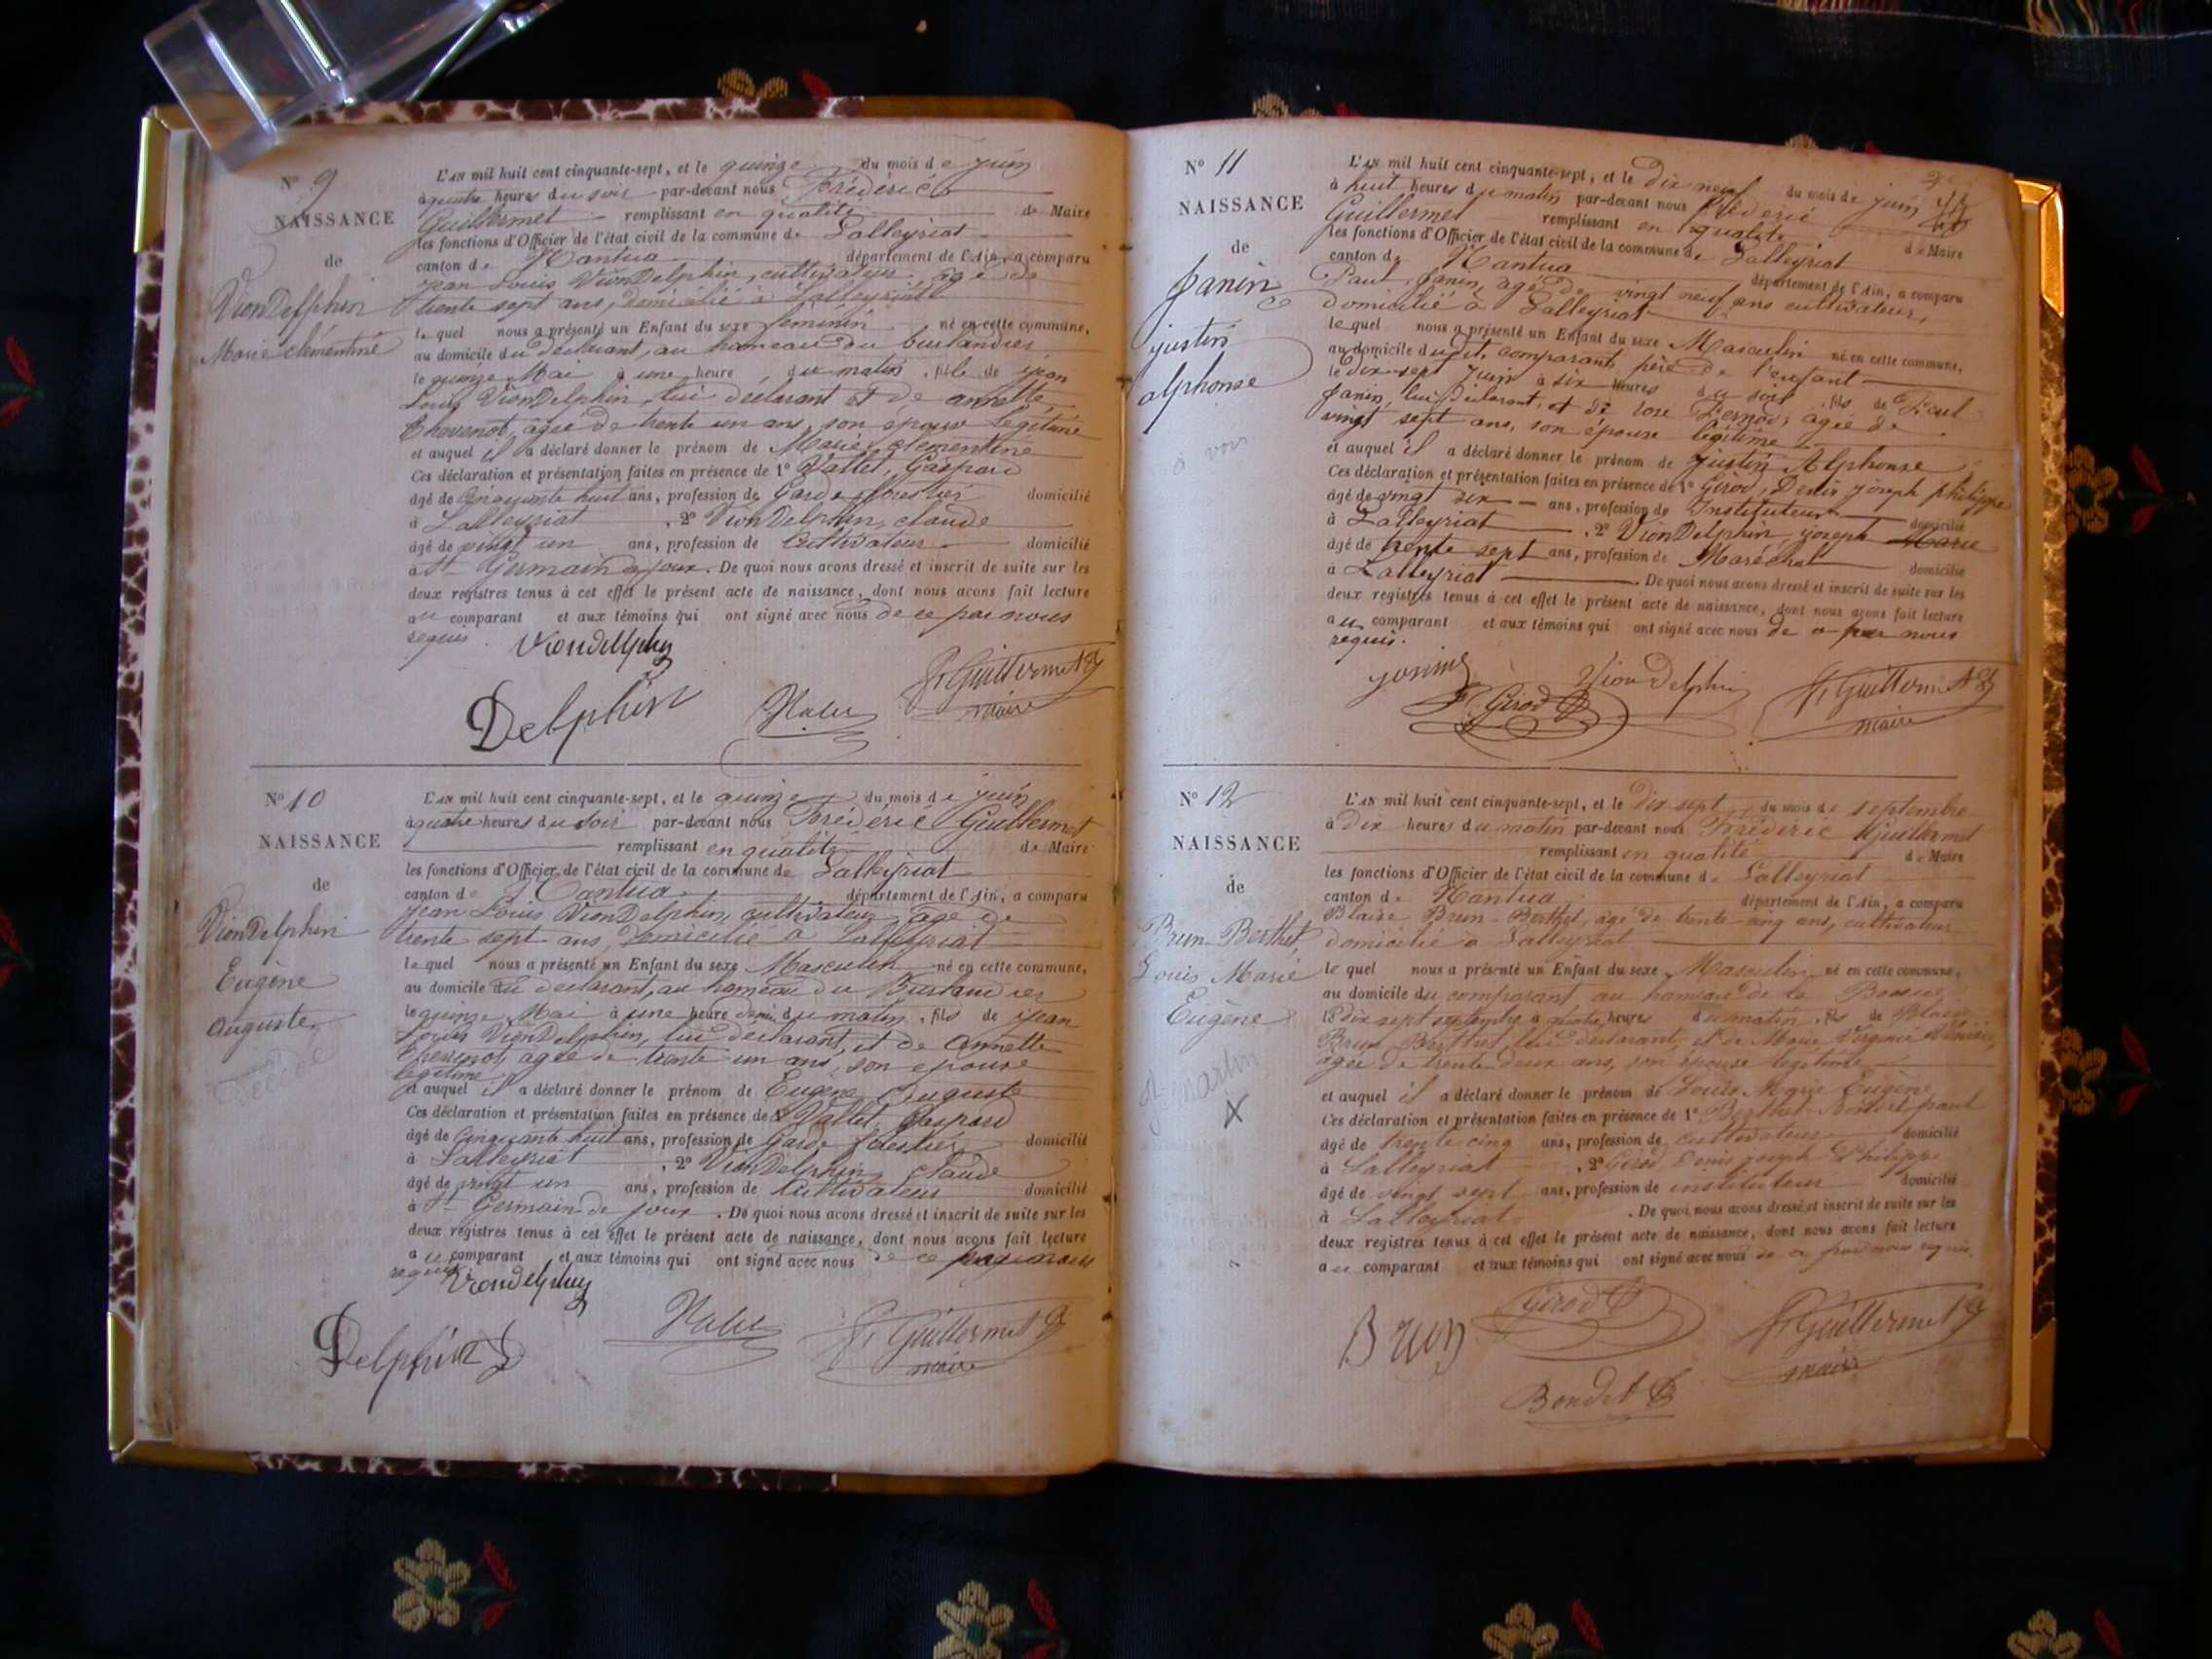 Nº 9
NAISSANCE
de
VionDelphin
Marie clémentine
L'AN mil huit cent cinquante-sept, et le quinze du mois de juin
à quatre heures du soir par-devant nous Fréderic
Guillermet remplissant en qualité de Maire
les fonctions d'Officier de l'état civil de la commune de Lalleyriat
canton de Nantua département de l'Ain, a comparu
jean Louis VionDelphin, cultivateur âgé de
trente sept ans, domicilié à Lalleyriat
lequel nous a présenté un Enfant du sexe féminin né en cette commune,
au domicile du déclarant, au hameau du
le quinze Mai à une heure du matin, fille de jean
Louis VionDelphin, lui déclarant et de annette
Chevenot, agée de trente un ans, son épouse légitime
et auquel il a déclaré donner le prénom de Marie clementine
Ces déclaration et présentation faites en présence de 1º Vallet, Gaspard
âgé de Cinquante huit ans, profession de Garde forestier domicilié
à Lalleyriat, 2º VionDelphin, claude
âgé de vingt un ans, profession de Cultivateur domicilié
à St Germain de joux. De quoi nous avons dressé et inscrit de suite sur les
deux registres tenus à cet effet le présent acte de naissance, dont nous avons fait lecture
au comparant et aux témoins qui ont signé avec nous de ce par nous
requis
Viondelphin
Delphin
F. Guillermet
maire
Nº 10
NAISSANCE
de
VionDelphin
Eugène
auguste
L'AN mil huit cent cinquante-sept, et le quinze du mois de juin
à quatre heures du soir par-devant nous Fréderic Guillermet
remplissant en qualité de Maire
les fonctions d'Officier de l'état civil de la commune de Lalleyriat
canton de Nantua département de l'Ain, a comparu
jean Louis VionDelphin, cultivateur, âgé de
trente sept ans, domicilié à Lalleyriat
lequel nous a présenté un Enfant du sexe Masculin né en cette commune,
au domicile du déclarant, au hameau du
le quinze Mai à une heure demie du matin, fils de jean
Louis VionDelphin, lui déclarant, et de annette
Chevenot, agée de trente un ans, son epouse
légitime
et auquel il a déclaré donner le prénom de Eugene auguste
Ces déclaration et présentation faites en présence de 1º Vallet, Gaspard
âgé de Cinquante huit ans, profession de Garde forestier domicilié
à Lalleyriat, 2º VionDelphin, claude
âgé de vingt un ans, profession de Cultivateur domicilié
à St Germain de joux. De quoi nous avons dressé et inscrit de suite sur les
deux registres tenus à cet effet le présent acte de naissance, dont nous avons fait lecture
au comparant et aux témoins qui ont signé avec nous de ce par nous
requis
Viondelphin
Delphin
F. Guillermet
maire
Nº 11
NAISSANCE
de
Janin
justin
alphonse
à voir
L'AN mil huit cent cinquante-sept, et le dix neuf du mois de juin
à huit heures du matin par-devant nous Fréderic
Guillermet remplissant en qualité de Maire
les fonctions d'Officier de l'état civil de la commune de Lalleyriat
canton de Nantua département de l'Ain, a comparu
Paul Janin, âgé de vingt neuf ans cultivateur,
domicilié à Lalleyriat
lequel nous a présenté un Enfant du sexe Masculin né en cette commune,
au domicile dudit comparant, père de l'enfant
le dix-sept juin à six heures du soir, fils de Paul
Janin, lui déclarant, et de agée de
vingt sept ans, son épouse légitime
et auquel il a déclaré donner le prénom de justin Alphonse
Ces déclaration et présentation faites en présence de 1º Girod, Denis joseph philippe
âgé de vingt six ans, profession de Instituteur domicilié
à Lalleyriat, 2º VionDelphin, joseph Marie
âgé de trente sept ans, profession de Maréchal domicilié
à Lalleyriat. De quoi nous avons dressé et inscrit de suite sur les
deux registres tenus à cet effet le présent acte de naissance, dont nous avons fait lecture
au comparant et aux témoins qui ont signé avec nous de ce par nous
requis.
Vion Delphin
Girod
F. Guillermet
maire
Nº 12
NAISSANCE
de
Brun-Berthet,
Louis Marie
Eugène
St martin
X
L'AN mil huit cent cinquante-sept, et le Dix sept du mois de septembre
à dix heures du matin par-devant nous Fréderic Guillermet
remplissant en qualité de Maire
les fonctions d'Officier de l'état civil de la commune de Lalleyriat
canton de Nantua département de l'Ain, a comparu
Blaise Brun-Berthet, âgé de trente cinq ans, cultivateur
domicilié à Lalleyriat
lequel nous a présenté un Enfant du sexe Masculin né en cette commune,
au domicile du comparant, au hameau de la
le dix sept septembre à quatre heures du matin, fils de Blaise
Brun Berthet, lui déclarant, et de Marie Virginie
agée de trente deux ans, son épouse légitime
et auquel il a déclaré donner le prénom de Louis Marie Eugène
Ces déclaration et présentation faites en présence de 1º
âgé de trente cinq ans, profession de cultivateur domicilié
à Lalleyriat, 2º Girod Denis joseph Philippe
âgé de vingt sept ans, profession de instituteur domicilié
à Lalleyriat. De quoi nous avons dressé et inscrit de suite sur les
deux registres tenus à cet effet le présent acte de naissance, dont nous avons fait lecture
au comparant et aux témoins qui ont signé avec nous de ce par nous requis.
Brun
Girod
F. Guillermet
maire